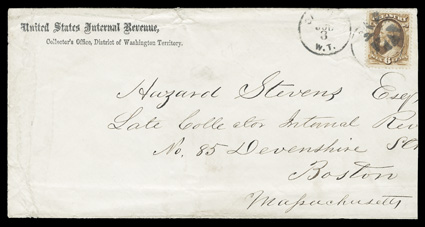 United States Internal Revenue,
Collector's Office, District of Washington Territory.
3
W.T.
Hazard Stevens Esqr
Late Collector Internal Rev
No. 85 Devenshire St
Boston
Massachusetts